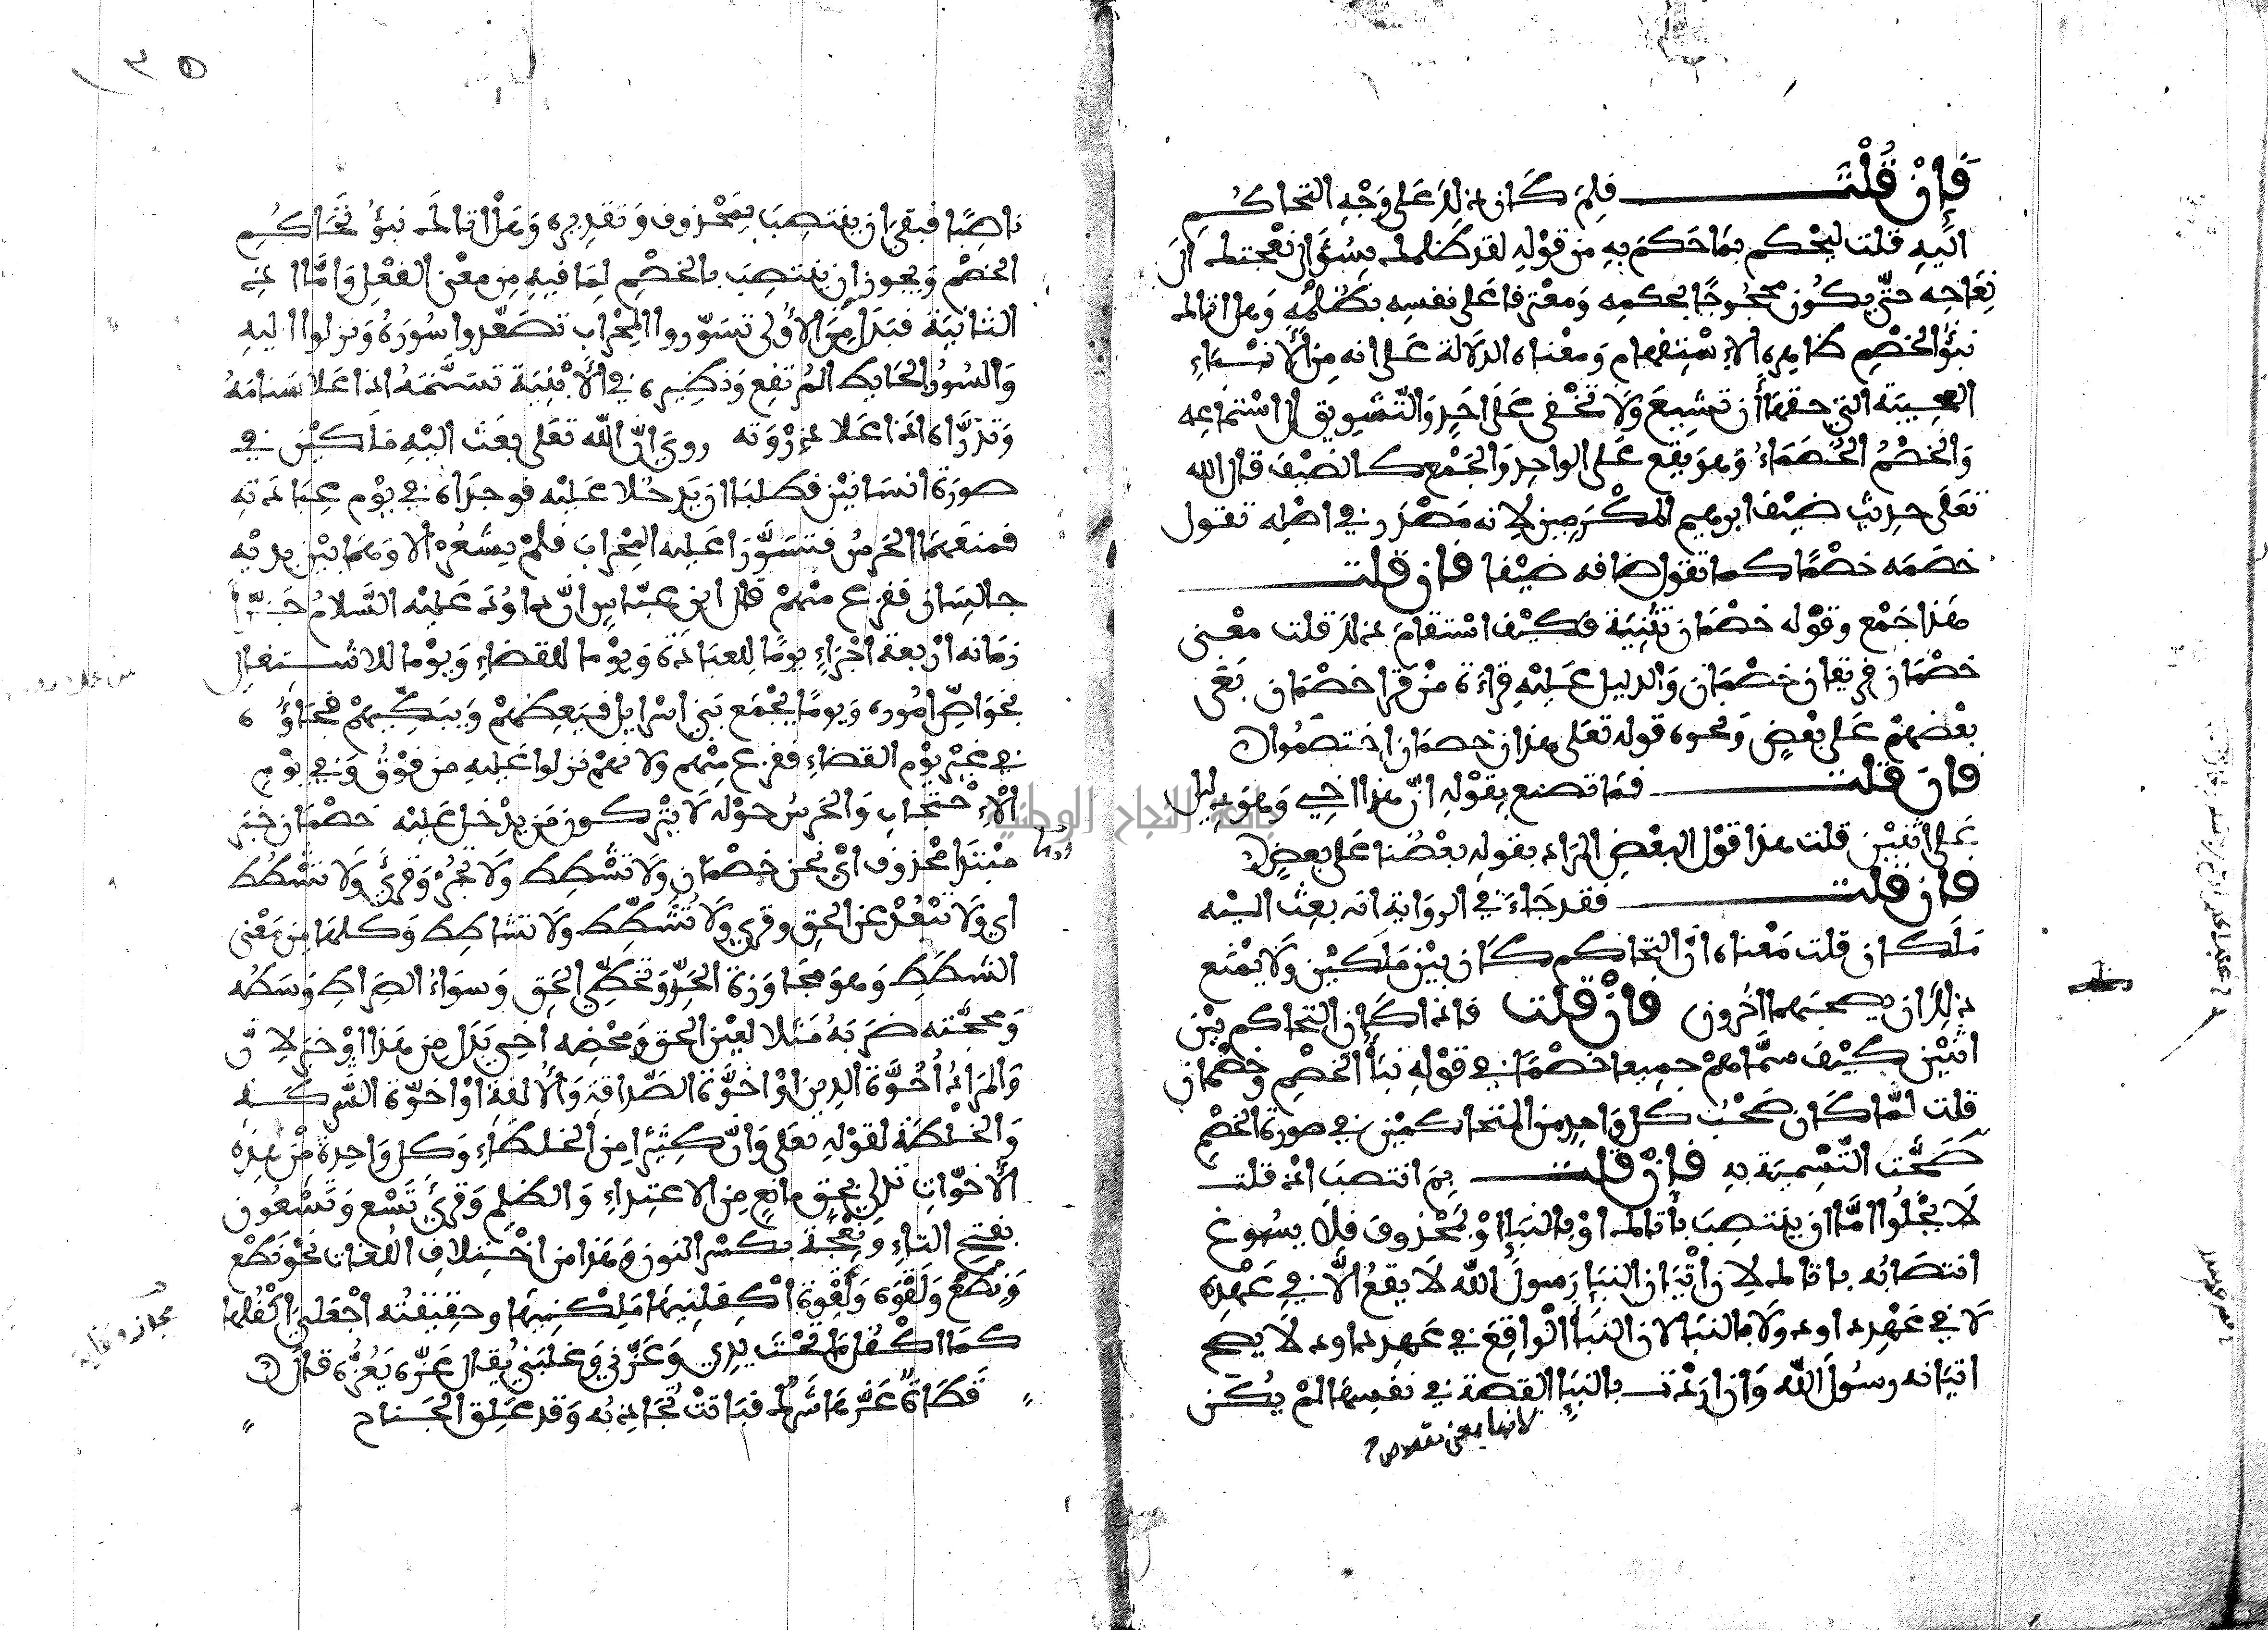 فَإِنْ قُلْتَ فَلِمَ كَانَ ذَلِكَ عَلَى وَجْهِ التحاكُم
اليه قلت ليحْكم بمَا حَكَمَ بِهِ من قَوْلِهِ لقد ظلمك بِسُؤَال نعْجتك الَى
نِعَاجِه حتّى يكُون محْجُوجًا بحكمِه وَمعْترفا عَلى نفسِه بظُلمِه وَهل اتاك
نبؤُا الخصْمِ ظاهره الاِسْتِفهام وَمعْناه الدلَالة عَلى انه مِن الأنْبَاءِ
العجيبَة التي حقهَا أن تشِيعَ وَلَا تَخْفى عَلَى احَدٍ وَالتّشوِيق الى اسْتماعِه
وَالخصْمُ الخُصَمَاءُ وَهوَ يقع عَلى الواحِدِ وَالجَمْع كالضيْفِ قال الله
تعَلَى حدِيث ضيْفِ ابرهيم المكْرَمِين لِانه مَصْدَر في اصْلِه تقول
خصَمَه خصْمًا كما تقول ضافه ضيْفا فان قلت
هَذا جَمْع وقوْله خصْمَان تثْنِيَة فكيْف اسْتقامَ ذلك قلت معْنى
خصْمَان فريقان خصْمَان وَالدليل عَليْهِ قراءَة منْ قرَا خصْمَان بَغى
بعْضهمْ عَلى بعْضٍ وَنحوه قوله تعَلى هذان خصمَان اختصَمُوا
فان قلت فمَا تصنع بِقوْلِهِ انّ هذا اخي وَهوَ دليل
عَلى اثنيْن قلت هذا قوْل البعْضِ المرَاد بقولِه بعْضُنا عَلى بعضٍ
فان قلت فقد جَاءَ في الروَاية انه بعِث اليه
مَلَكان قلت مَعْناه انّ التحاكم كانَ بيْن مَلَكيْن وَلَا يمْنَع
ذلك ان يصحبَهما اخَرون فانْ قلت فاذا كان التحاكم بيْن
اثنيْن كيْفَ سمَّاهمْ جميعا خصْمَا في قوْلهِ نبَأ الخصْمِ وَخصْمان
قلت لمّا كان صَحْب كل وَاحِد من المتحاكميْن في صورَة الخصْمِ
صَحَّت التّسْمِيَة به فانْ قلت بِمَ انتصَبَ اذ قلت
لَا يخْلُوا امَّا ان ينتصِبَ بأتاك اوْ بالنبَإ اوْ بمَحْذوفَ فلا يسُوغ
انتصَابُه باتاك لِان اتْيَان النبَإ رَسولَ الله لَا يقعُ الَّا في عَهْدِه
لَا في عَهْدِ داود ولَا بالنبَإ لان النبَأ الوَاقِعَ في عَهدِ داود لَا يصح
اتيَانه رسُولَ الله وَان ارَدْت بالنبَإِ القصة في نفسِهَا لمْ يكُن
ناصِبًا فبَقى ان ينتصِبَ بمَحْذوف وَتقدِيره وَهلْ اتاك نبَؤُ تَحَاكُمِ
الخصْم وَيجوز ان ينتصِبَ بالخصْمِ لِمَا فيهِ مِن معْنى الفعْل وَامَّا اذِ
الثانيَة فبَدَل مِنَ الأُولى تسَوّروا المِحْرَاب تصَعَّدوا سُورَهُ وَنزلوا اليهِ
وَالسُورُ الحَايط المرْتفع وَنظِيره في الأبْنِيَة تسَنَّمَهُ اذا عَلا سَنامَهُ
وَتذرَّاه اذا عَلا ذرْوَته رويَ انّ الله تعَلى بعَث اليْهِ مَلَكيْن في
صورَة انسَانيْن فطلبَا ان يَدخُلا عَليْه فوجدَاه في يوْم عِبَادَته
فمنعَهمَا الحَرسُ فتسَوَّرَا عَليه المِحْرَابَ فلمْ يشعُرْ الا وَهمَا بيْن يديْه
جالسَان ففزع منْهمْ قال ابن عبّاس انّ داوُدَ عَليْه السَّلامُ جَزَّأ
زمَانه ارْبعة اجْزَاءٍ يومًا للعبَادَة وَيوْما للقضَاءِ وَيوْما للاشتغالِ
بخوَاصِّ امُوره وَيومًا يجْمَع بَني اسْرايل فيَعظهمْ وَيبَكّيهمْ فجَاؤُه
في غيْر يوْم القضاءِ ففزع منْهم ولانهمْ نزلوا عَليه من فوْق وَفي يوْم
الِاحْتجَابِ وَالحَرسُ حَوْله لَا يتْركون مَن يدْخل عَليْه خصْمَان خبَر
مبْتدَإ محْذوف ايْ نحن خصْمَان وَلَا تُشْطِط وَلَا تجُرْ وَقرئَ وَلَا تشْطُط
اي وَلَا تبْعُدْ عن الحق وقرئ وَلَا تُشَطِّط ولَا تشاطِط وَكلهَا مِن مَعْنى
الشطَطِ وَهوَ مجَاوَزة الحَدِّ وَتخطِّي الحَق وَسوَاءُ الصِّرَاطِ وَسَطُه
وَمحجَّته ضرَبَهُ مَثلا لعيْن الحق وَمحْضِه اخي بَدَل مِن هَذا اوْ خبَر لِانّ
وَالمرَادُ اُخُوَّة الدين اوْ اخوَّة الصَّدَاقةِ وَالألفةِ اوْ اخوّة الشركة
وَالخلطة لقوْلِهِ تعَلى وَانّ كثِيرًا مِن الخلطاءِ وَكل وَاحِدة مْن هذِه
الأخوّاتِ تدْلي بحق مانعٍ مِن الاعتِداءِ وَالظلم وَقرئَ تَسْع وَتَسْعُون
بفتح التاءِ وَنِعْجة بكسْر النون وَهذا من اخْتلافِ اللغات نحْو نَطْع
وَنِطْع وَلَقْوَة وَلِقْوَة اكْفلنيهَا مَلِكْنيهَا وحقيقته اجْعَلني اكْفُلها
كمَا اكْفُل مَا تحْت يدِي وَعَزَّني وَغلبَني يُقال عَزّه يَعُزُّه قال
قطاةٌ عَزَّهَا شرَكٌ فبَاتتْ تُجَاذبُه وَقد عَلِق الجَناح
مجاز وكناية
١٣٥
جامعة النجاح الوطنية